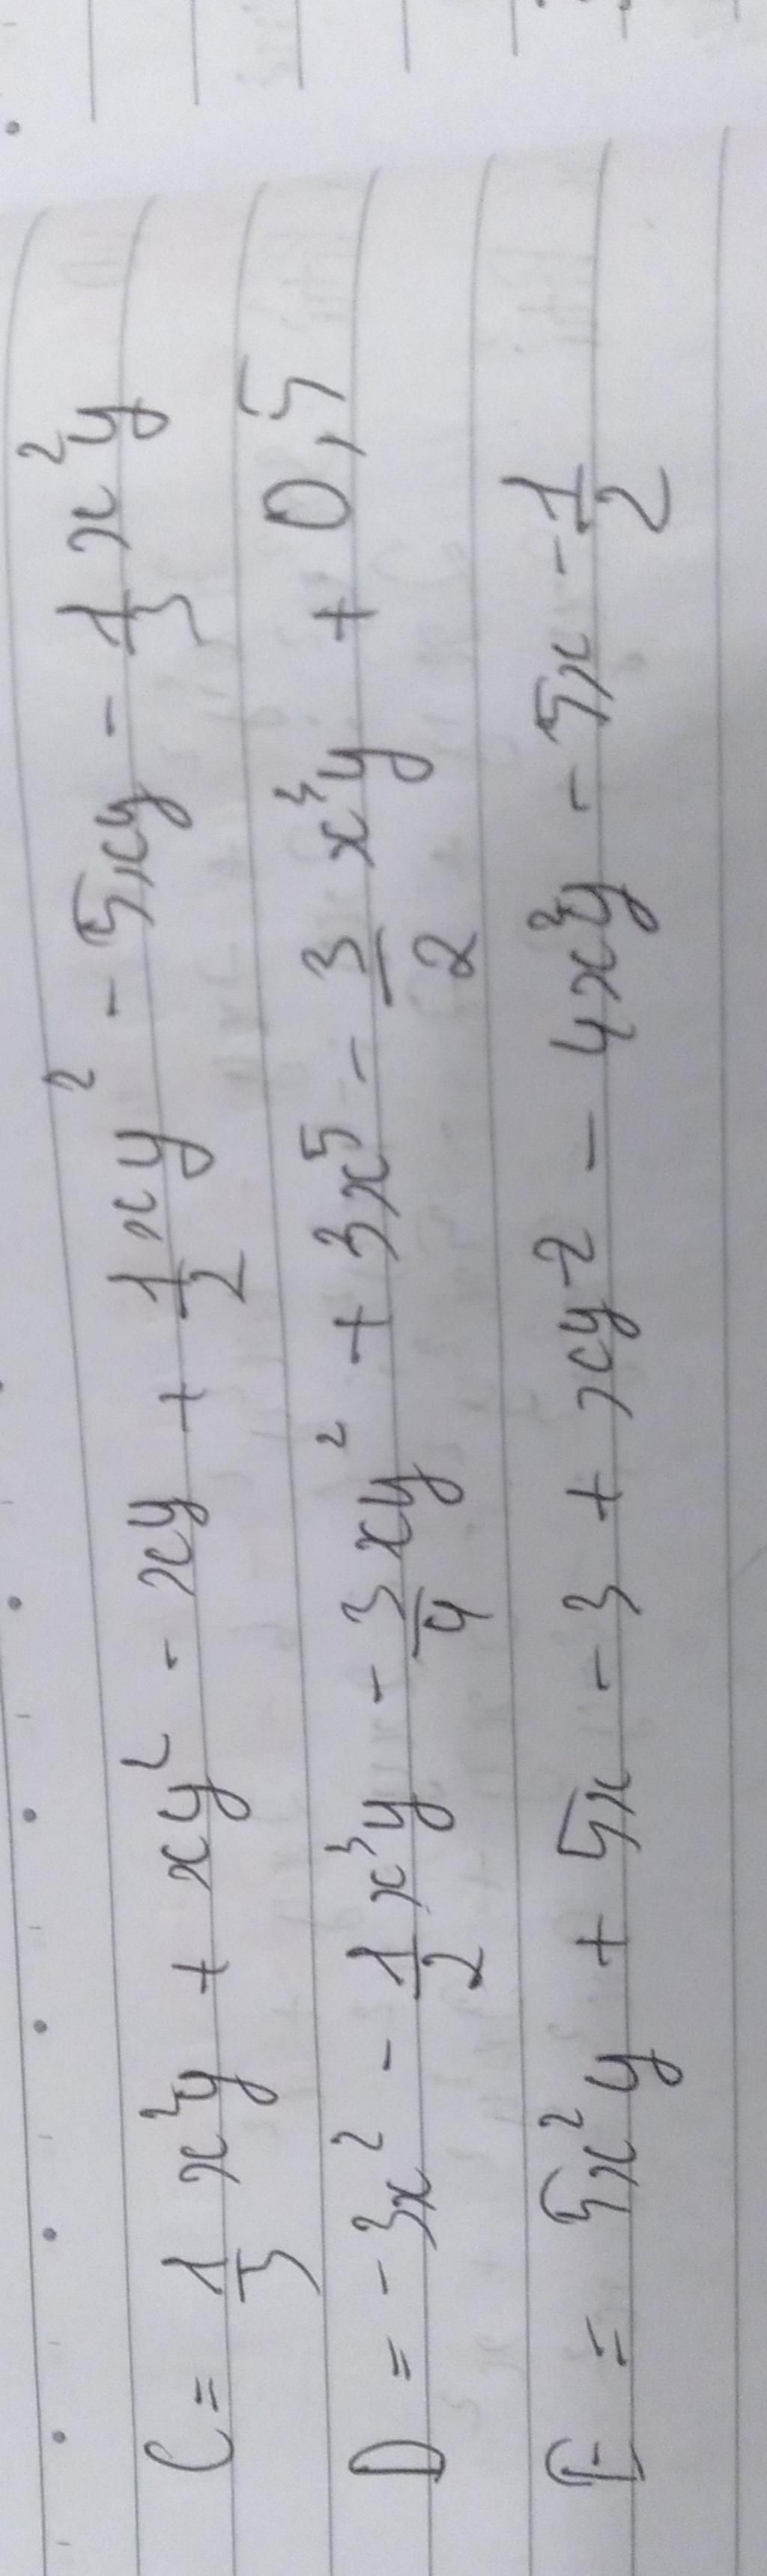 C = 1/3 x²y + xy² - xy + 1/2 xy² - 5xy - 1/3 x²y
D = -3x² - 1/2 x³y - 3/4 xy² + 3x⁵ - 3/2 x³y + 0,5
E = 5x²y + 5x - 3 + xy² - 4x²y - 5x - 1/2